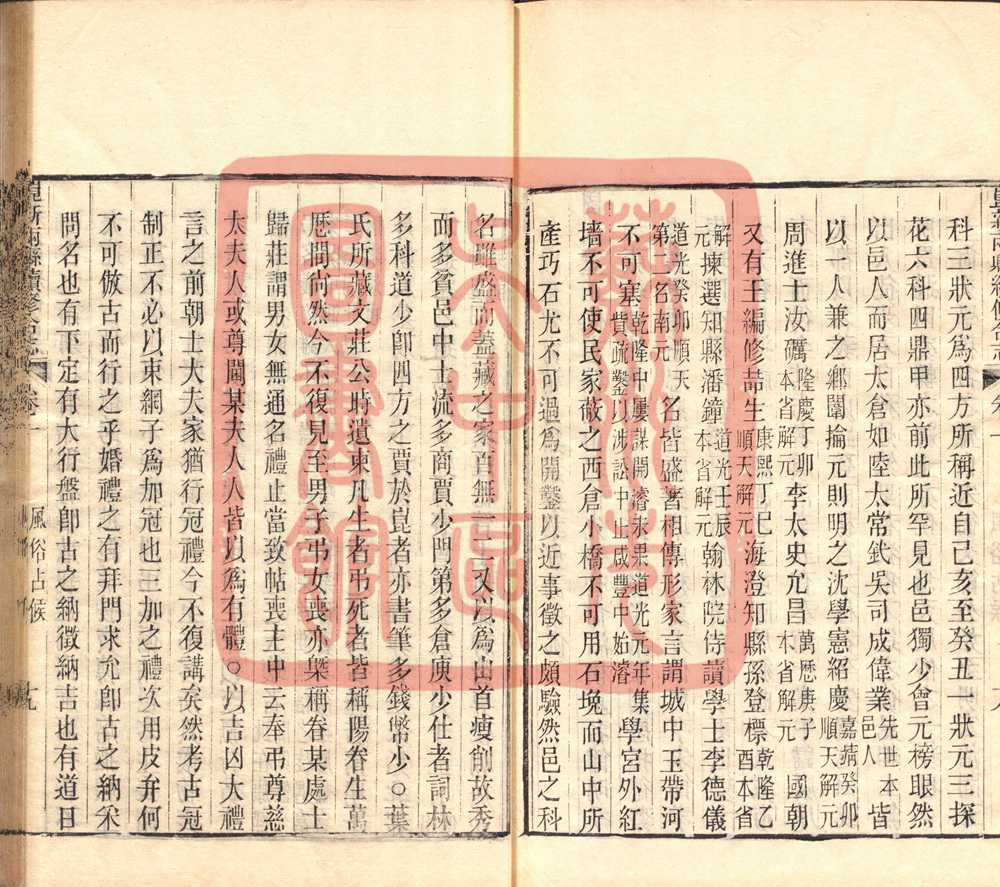 科三狀元爲四方所稱近自己亥至癸丑一狀元三探
花六科四鼎甲亦前此所罕見也邑獨少會元榜眼然
以邑人而居太倉如陸太常釴吳司成偉業先世本邑人皆
以一人兼之鄉闈掄元則明之沈學憲紹慶嘉靖癸卯順天解元
周進士汝礪隆慶丁卯本省解元李太史允昌萬曆庚子本省解元國朝
又有王編修喆生康熙丁巳順天解元海澄知縣孫登標乾隆乙酉本省
解元揀選知縣潘鐘道光壬辰本省解元翰林院侍讀學士李德儀
道光癸卯順天第二名南元名皆盛著相傳形家言謂城中玉帶河
不可塞乾隆中屢謀開濬未果道光元年集費疏鑿以涉訟中止咸豐中始濬學宮外紅
墻不可使民家蔽之西倉小橋不可用石堍而山中所
產巧石尤不可過爲開鑿以近事徵之頗驗然邑之科
名雖盛而蓋藏之家百無一二又以爲山首瘦削故秀
而多貧邑中士流多商賈少門第多倉庾少仕者詞林
多科道少卽四方之賈於崑者亦書筆多錢幣少○葉
氏所藏文莊公時遺柬凡生者弔死者皆稱陽眷生萬
厯間尚然今不復見至男子弔女喪亦槩稱眷某處士
歸莊謂男女無通名禮止當致帖喪主中云奉弔尊慈
太夫人或尊閫某夫人人皆以爲有體○以吉凶大禮
言之前朝士大夫家猶行冠禮今不復講矣然考古冠
制正不必以束網子爲加冠也三加之禮次用皮弁何
不可倣古而行之乎婚禮之有拜門求允卽古之納采
問名也有下定有大行盤卽古之納徵納吉也有道日
崑新兩縣續修合志 卷一 風俗占候 十九